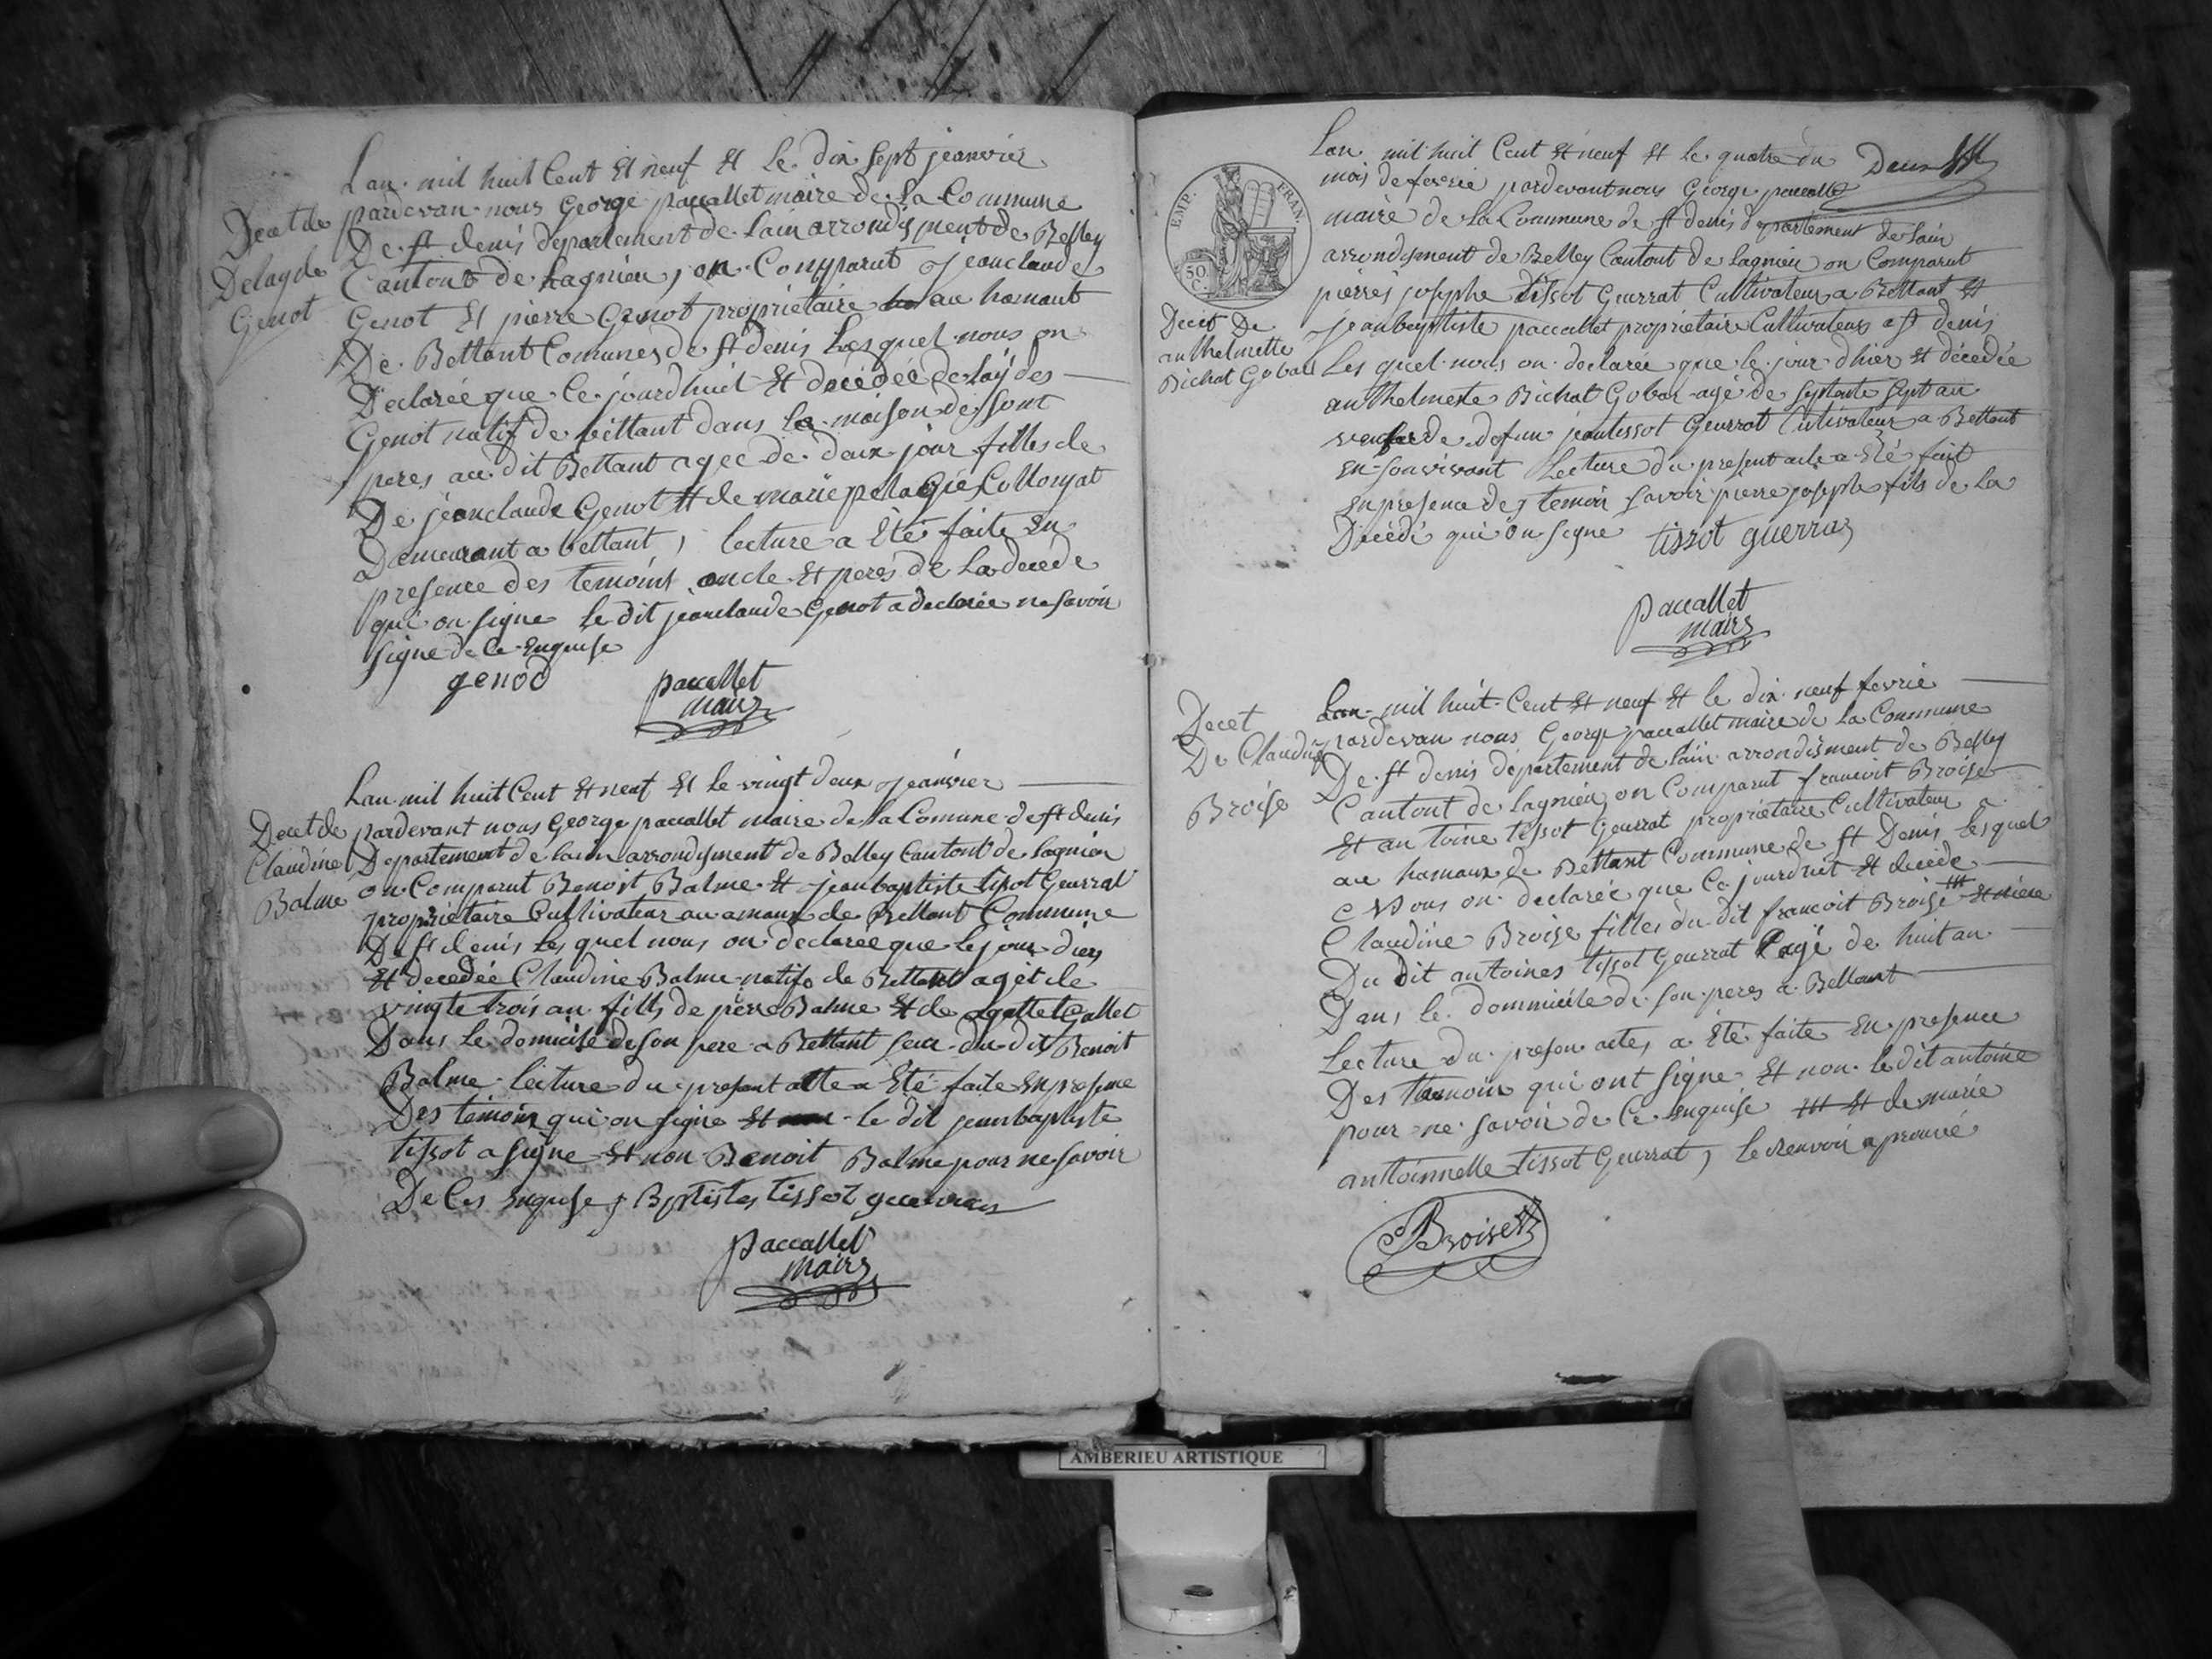 Lan mil huil Cent Et neuf Et le dix sept jeanvier
Decet de
Delayde
Genot
pardevan nous George paccallet maire de La Commune
De st denis departement de lain arrondisment de Belley
Cantont de Lagnieu, on Comparut jeanclaude
Genot Et pierre Genot propriétaire au hamant
De Bettant Comune de st denis Lesquel nous on
Declarée que Ce jourdhuit Et décédée delaÿdes
Genot natif de bettant dans la maison de sont
peres au dit Bettant agee de deux jour filles de
De jeanclaude Genot Et de marie pelagie Collomyat
Demeurant a bettant, lecture a Eté faite En
presence des temoins oncle Et peres de La decéde
qui on signe le dit jeanclaude Genot a declarée ne savoir
signe de Ce Enquise
genod
paccallet
maire
Lan mil huit Cent Et neuf Et le vingt deux jeanvier
Decet de
Claudine
Balme
pardevant nous George paccallet maire de la Comune de st denis
Departement de lain arrondisment de Belley Cantont de lagnieu
on Comparut Benoit Balme Et jeanbaptiste tisot Geurrat
propriétaire Cultivateur au amaux de Bettant Commune
De st denis les quel nous on declarée que le jour diers
Et decedée Claudine Balme natife de Bettant agét de
vingte trois an fills de pere Balme Et de agattet Gallet
Dans Le domicile de son pere a Bettant seur du dit Benoit
Balme lecture du present atte a Eté faite En presence
Des temoins qui on signe Et le dit jeanbaptiste
tissot a signe Et non Benoit Balme pour ne savoir
De Ces Enquise Bptistes tissot
paccallet
maire
Deux
EMP. FRAN.
50 C.
Lan mil huit Cent Et neuf Et le quatre du
mois de fevrie pardevant nous George paccallet
maire de la Commune de st denis departement de lain
arrondisment de Belley Cantont de lagnieu on Comparut
pierres josephe tissot Geurrat Cultivateur a Bettant Et
Decet De
anthelmette
Bichat Gobar
jeanbaptiste paccallet propriétaire Cultivateur a st denis
Les quel nous on declarée que le jour dhier Et décedée
anthelmette Bichat Gobar agé de septante sept an
de defun jeantissot Geurrat Cultivateur a Bettant
En son vivant Lecture du present acte a Eté fait
En presence des temoin savoir pierre josephe fils de La
Décédé qui on signe tissot guerraz
paccallet
maire
Decet
De Claudine
Broise
Lan mil huit Cent Et neuf Et le dix neuf fevrie
pardevan nous George paccallet maire de la Commune
De st denis département de lain arrondisment de Belley
Cantont de lagnieu on Comparut francoit Broise
Et antoine tissot Geurrat propriétaire Cultivateur a
au hamaux de Bettant Commune de st Denis lesquel
Nous on declarée que Ce jourduit Et decéde
Claudine Broise filles du dit francoit Broise Et niéce
Du Dit antoines tissot Geurrat agé de huit an
Dans le dommicile de son peres a Bettant
Lecture du presen actes a Eté faite En presence
Des temoin qui ont signe Et non le dit antoine
pour ne savoir de Ce Enquise Et de marie
anttoinnelle tissot Geurrat, le renvoi aprouvé
Broise
AMBERIEU ARTISTIQUE